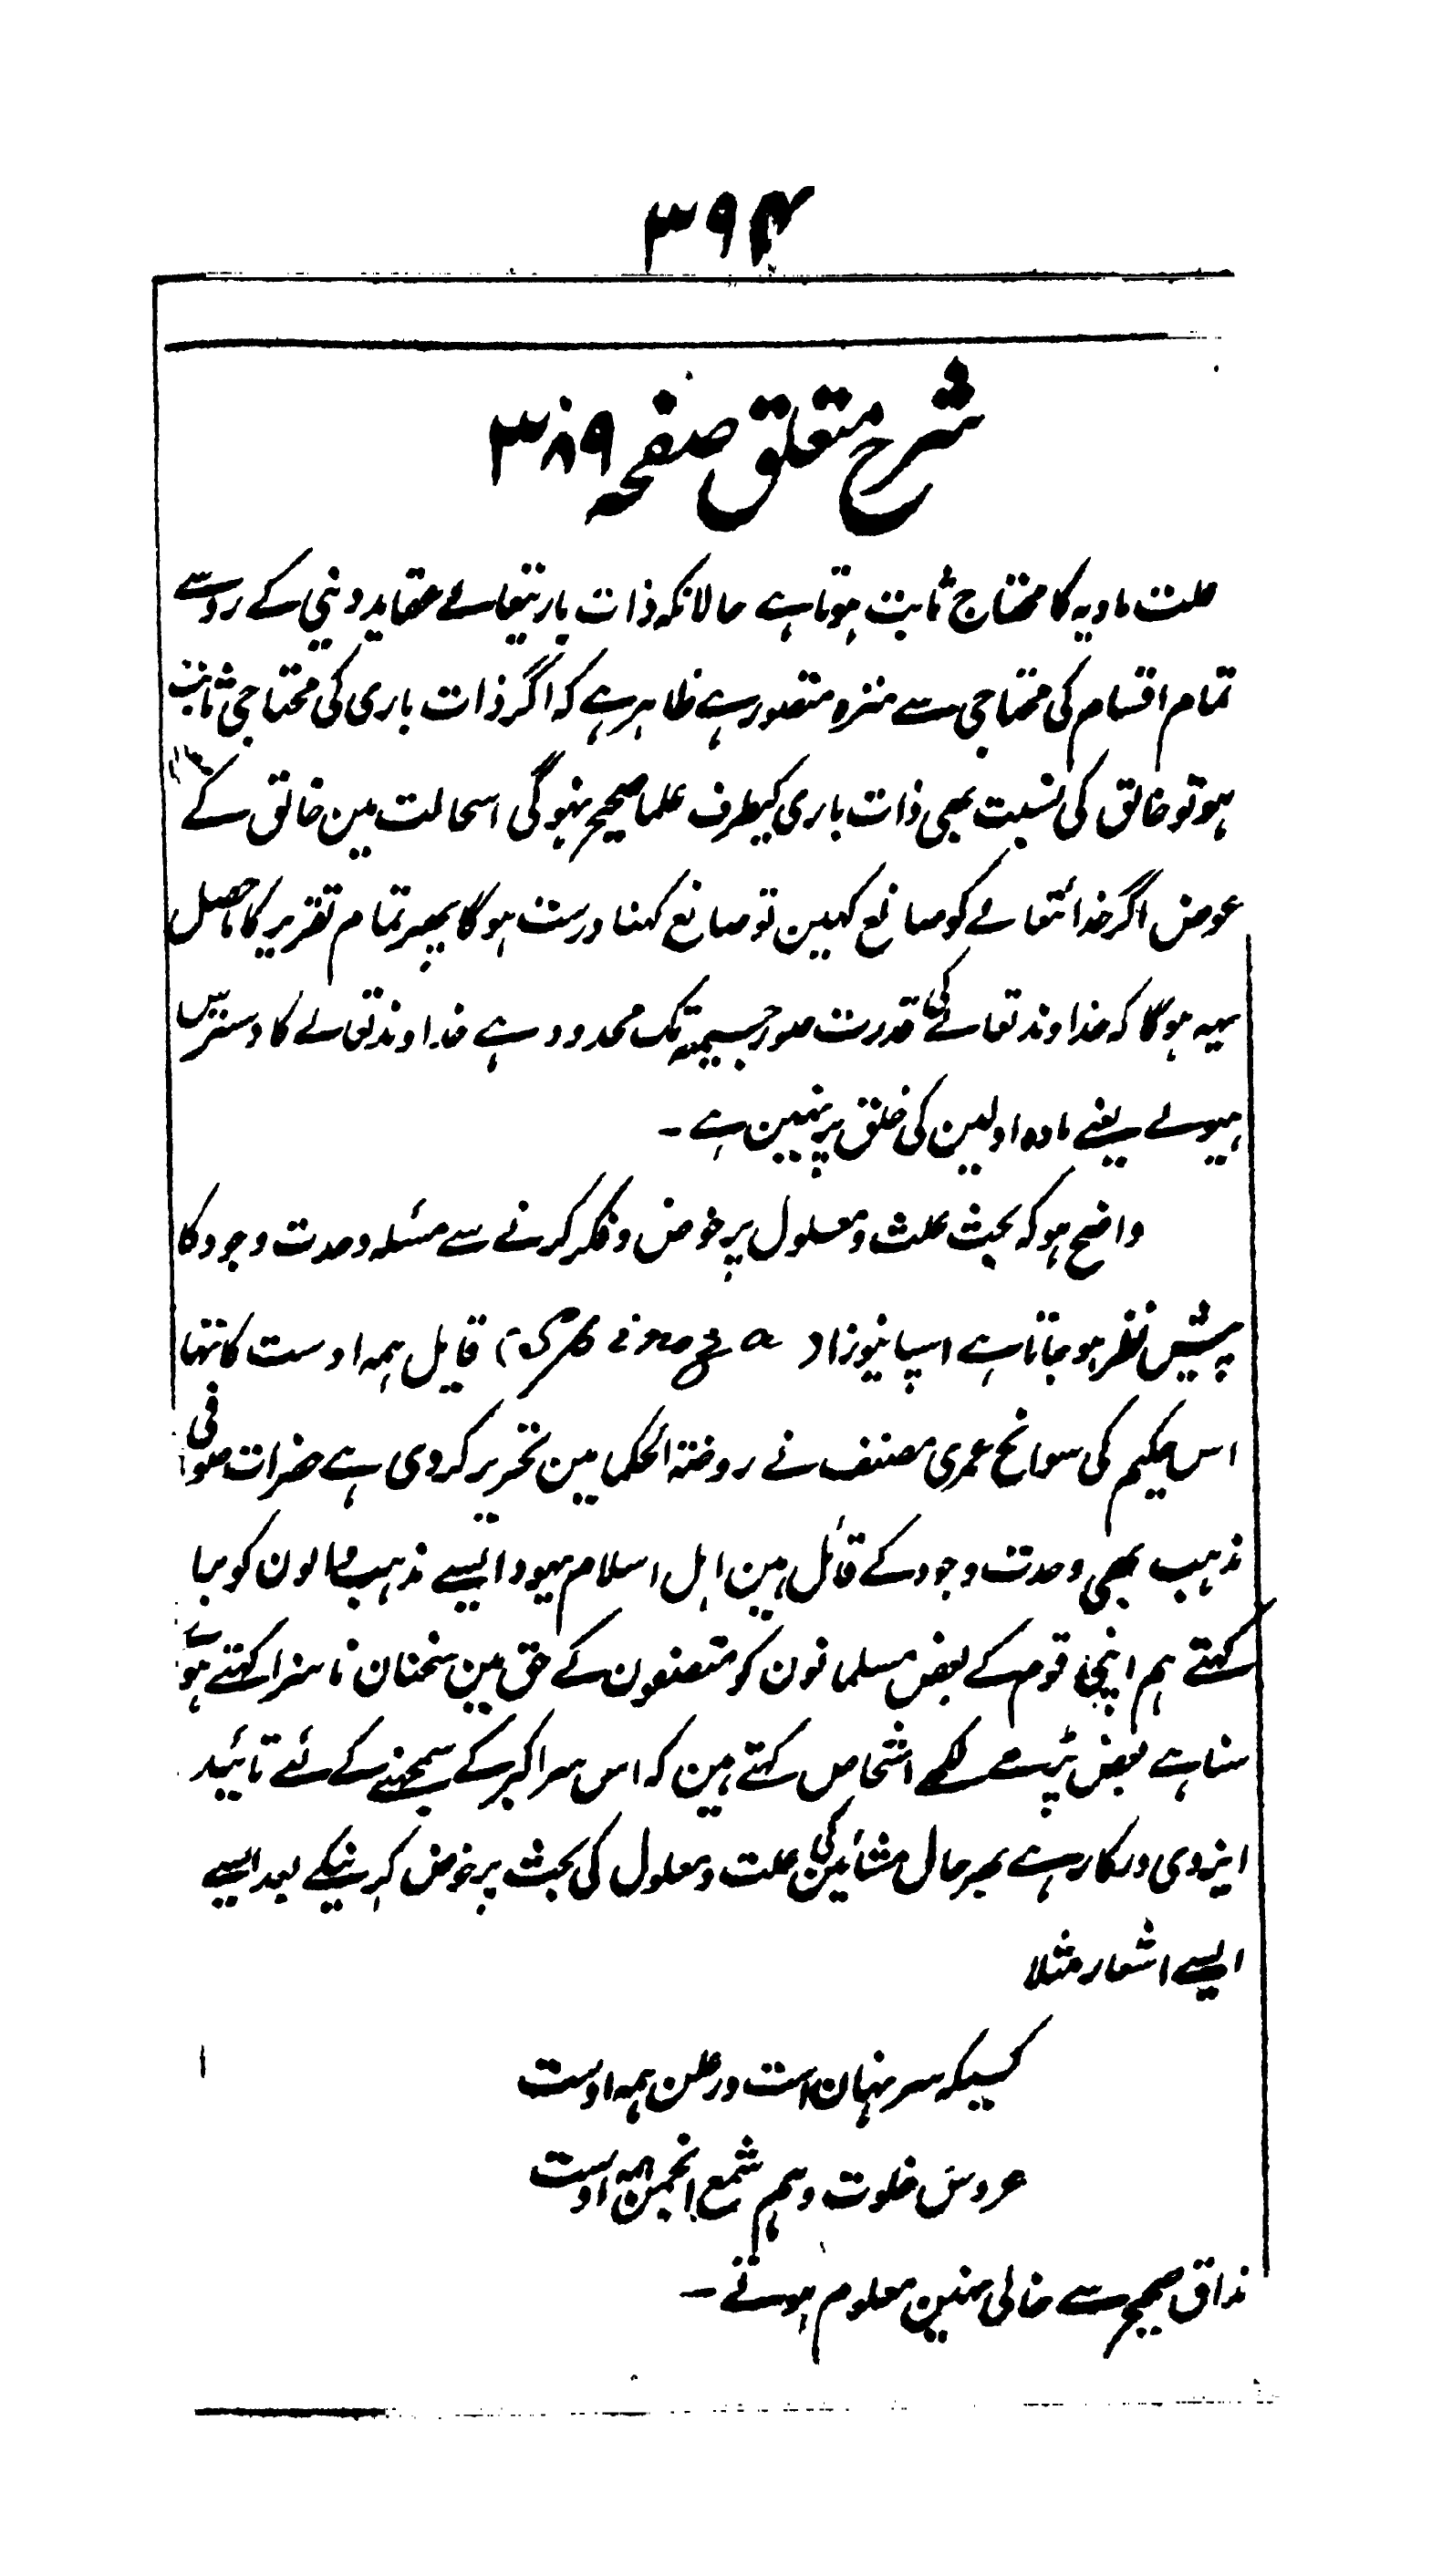 ۳۹۴
شرح متعلق صفحہ ۳۸۹
علت مادیہ کا محتاج ثابت ہوتا ہے حالانکہ ذات باریتعالے عقاید دینی کے روسے
تمام اقسام کی محتاجی سے منزہ متصور ہے ظاہر ہے کہ اگر ذات باری کی محتاجی ثابت
ہو تو خالق کی نسبت بھی ذات باری کیطرف علما صحیح نہوگی اسحالت مین خالق کے
عوض اگر خدائتعالے کو صانع کہین تو صانع کہنا درست ہوگا پھر تمام تقریر کا ماحصل
یہہ ہوگا کہ خداوند تعالے کی قدرت صور جسمیۃ تک محدود ہے خداوند تعالے کا دسترس
ہیولے یعنے مادہ اولین کی خلق پر نہین ہے ۔
واضح ہو کہ بحث علت و معلول پر خوض و فکر کرنے سے مسئلہ وحدت وجود کا
پیش نظر ہو جاتا ہے اسپانیوزا ( Spinoza ) قایل ہمہ اوست کا تھا
اس حکیم کی سوانح عمری مصنف نے روضۃ الحکما مین تحریر کردی ہے حضرات صوفی
مذہب بھی وحدت وجود کے قائل ہین اہل اسلام یہود ایسے مذہب والون کو
کہتے ہم اپنی قوم کے بعض مسلمانون کو متصفون کے حق مین سخنان ناسزا کہتے ہوے
سنا ہے بعض پڑھے لکھے اشخاص کہتے ہین کہ اس سر اکبر کے سمجھنے کے لئے تائید
ایزدی درکار ہے بہر حال مشائین کی علت و معلول کی بحث پر خوض کرنیکے بعد ایسے
ایسے اشعار مثلا
کسیکہ سر نہان است در علن ہمہ اوست
عروس خلوت و ہم شمع انجمن ہمہ اوست
مذاق صحیح سے خالی نہین معلوم ہوتے ۔